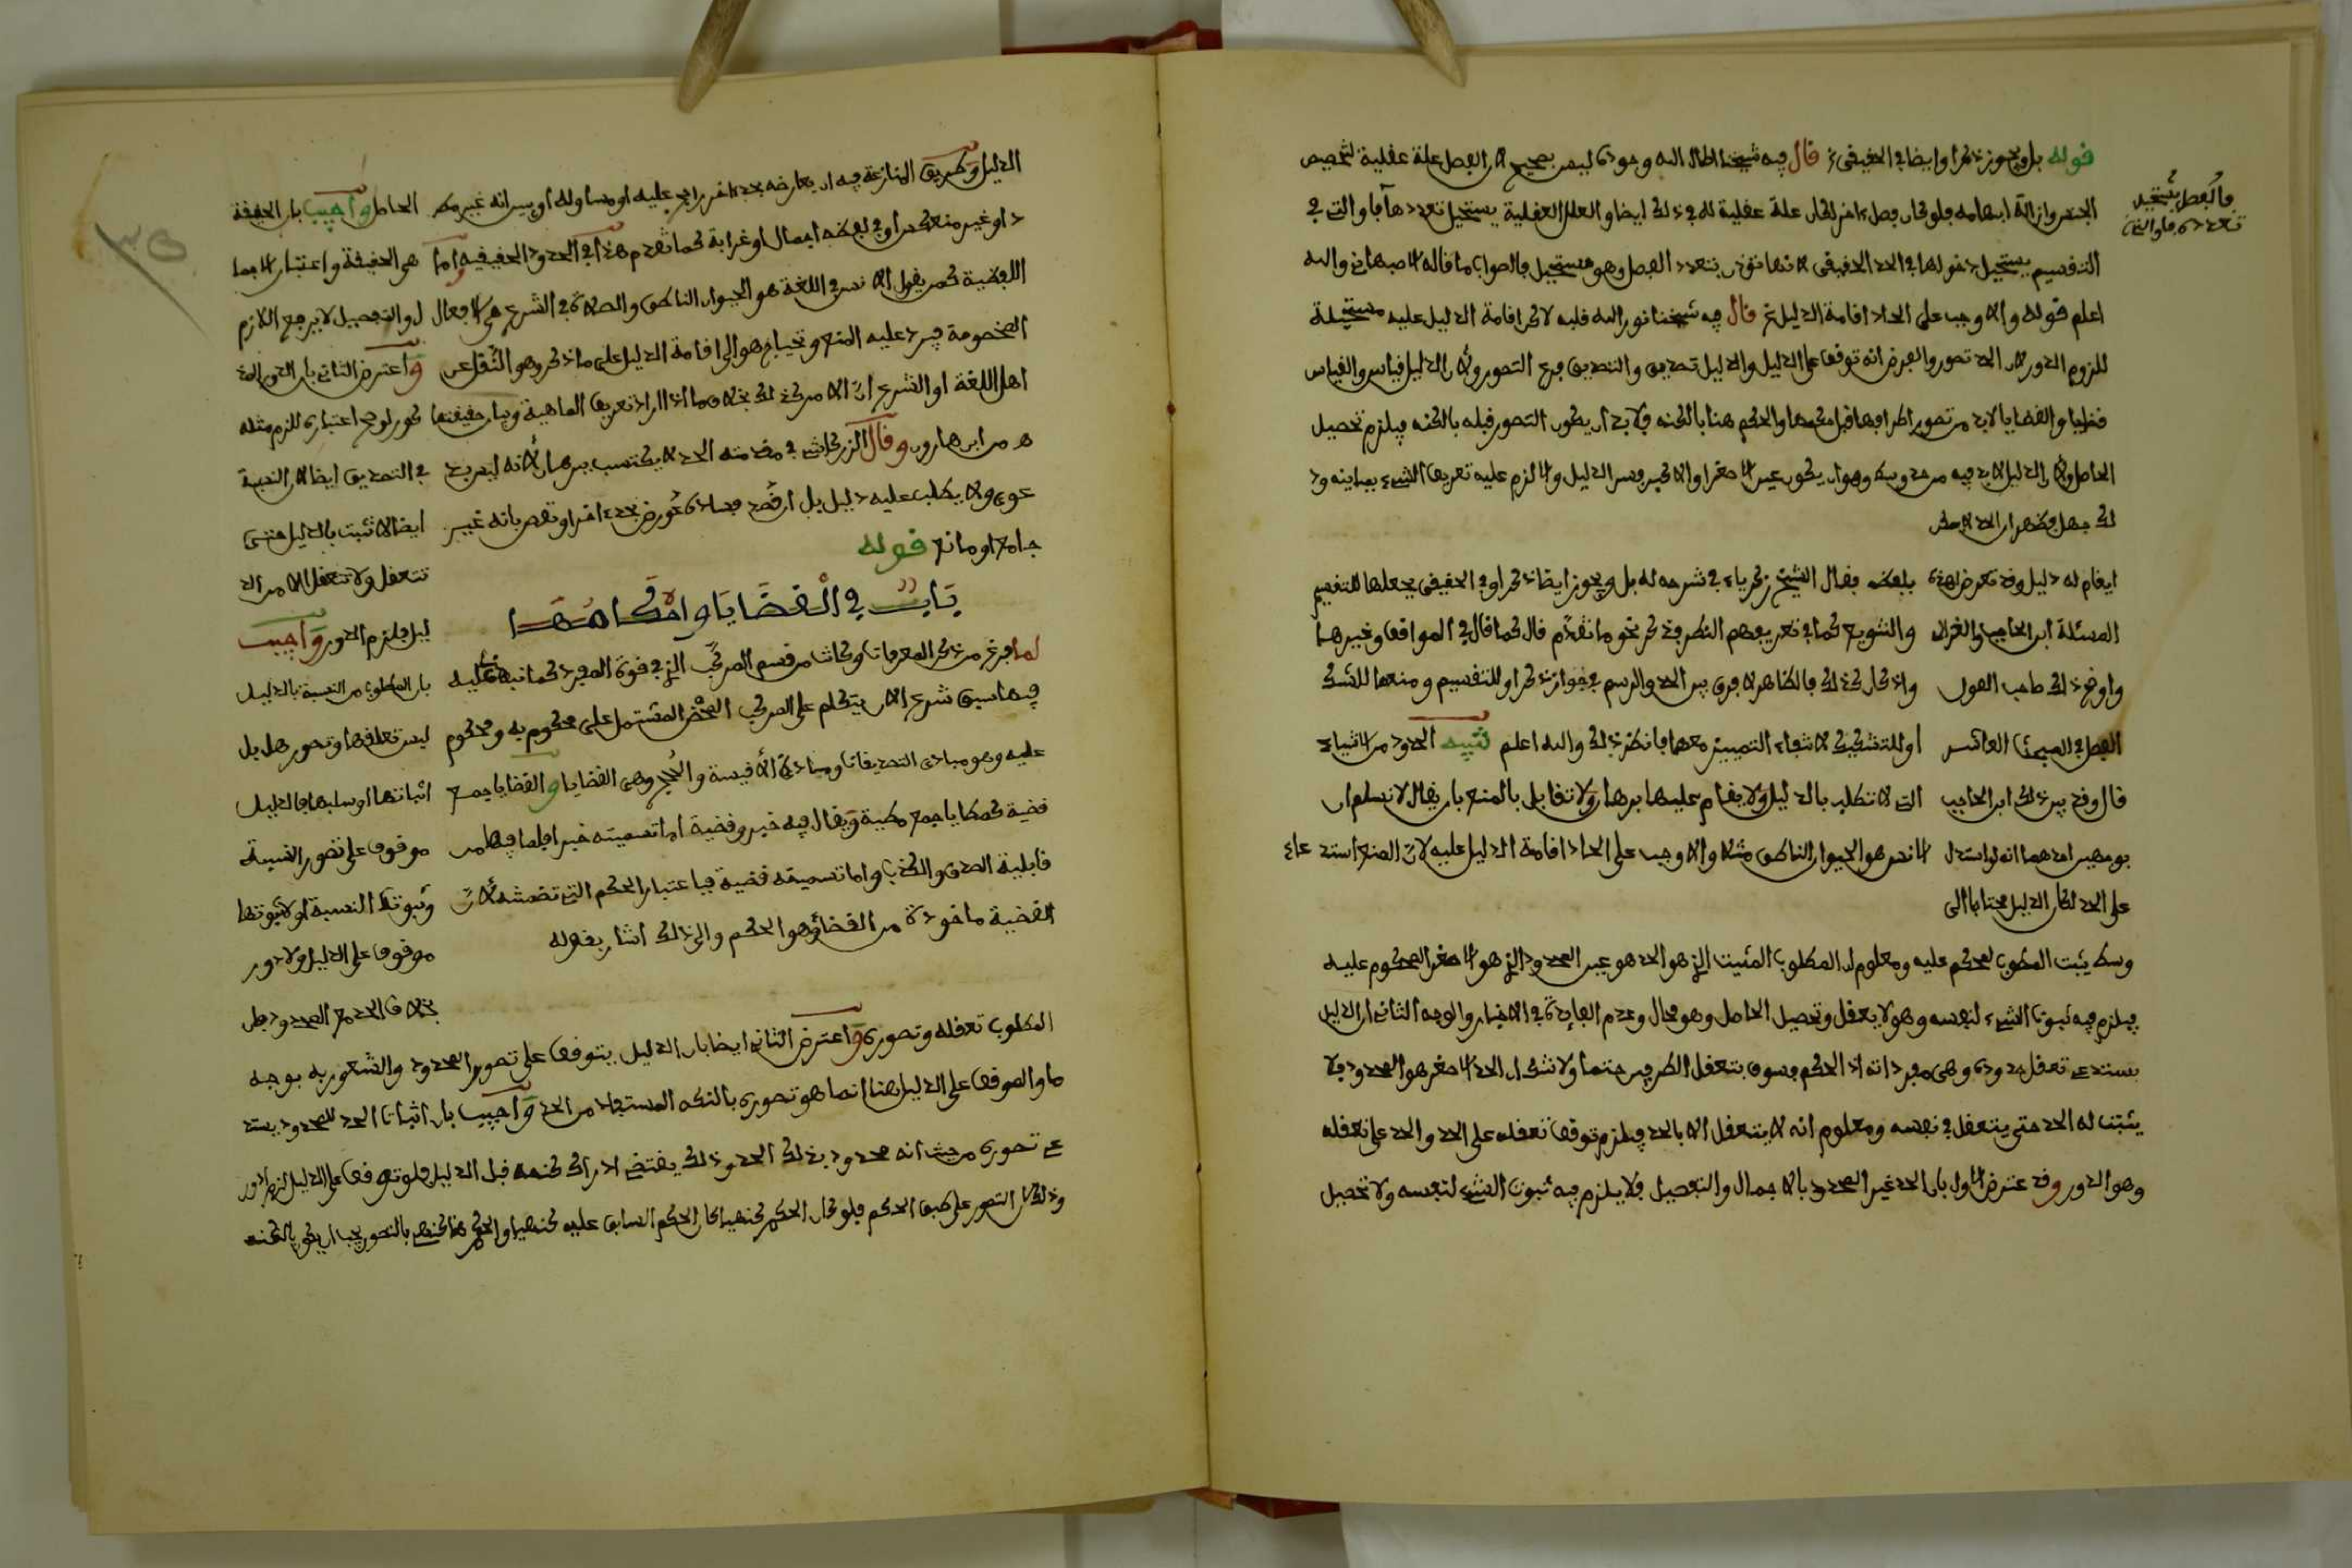 قوله بل ويجوز ذكر او ايضا في الحقيقي قال فيه شيخنا اطال الله وجوده ليس بصحيح لان الفصل علة عقلية لتخصيص
الجنس وازالة ابهامه فلو كان فصل اخر لكان علة عقلية له في ذلك ايضا والعلل العقلية يستحيل تعددها فاو التي في
فالفصل يستحيل
تعدده فاو التي
التقسيم يستحيل دخولها في الحد الحقيقي لانها تؤذن بتعدد الفصل وهو مستحيل فالصواب ما قاله الاصبهاني والله
اعلم قوله والا وجب على الحاد اقامة الدليل قال فيه شيخنا نور الله قلبه لاكن اقامة الدليل عليه مستحيلة
للزوم الدور لان الحد تصور والفرض انه توقف على الدليل والدليل تصديق والتصديق فرع التصور ولان الدليل قياس والقياس
قضايا والقضايا لا بد من تصور اطرافها قبل حكمها والحكم هنا بالكنه فلا بد ان يكون التصور قبله بالكنه فيلزم تحصيل
الحاصل ولان الدليل لا بد فيه من حد وسط وهو ان يكون عين الاصغر او الاكبر فسد الدليل والا لزم عليه تعريف الشيء بمباينه وذ
لك جهل فظهر ان الحد لا يمكن
ايقام له دليل وقد تعرض لهذه بلفظه فقال الشيخ زكرياء في شرحه له بل ويجوز ايضا ذكر او في الحقيقي بجعلها للتقسيم
المسئلة ابن الحاجب والغزالي والتنويع كما في تعريفهم النظر وقد ذكر نحو ما تقدم قال كما قال في المواقف وغيرها
واوضح ذلك صاحب القول واذ كان كذلك فالظاهر لا فرق بين الحد والرسم في جواز ذكر او للتقسيم ومنعها للشك
الفصل في المبحث العاشر او للتشكيك لانتفاء التمييز معهما فانظر ذلك والله اعلم تنبيه الحدود من الاشياء
قال وقد بين ذلك ابن الحاجب التي لا تطلب بالدليل ولا يقام عليها برهان ولا تقابل بالمنع بان يقال لا نسلم ان
بوجهين احدهما انه لو استدل الانس هو الحيوان الناطق مثلا والا وجب على الحاد اقامة الدليل عليه لان المنع استدعاء
على الحد لكان الدليل محتاجا الى
وسط يثبت المطلوب لمحكوم عليه ومعلوم ان المطلوب المثبت الذي هو الحد هو عين المحدود الذي هو الاصغر المحكوم عليه
فيلزم فيه ثبوت الشيء لنفسه وهو لا يعقل وتحصيل الحاصل وهو محال وعدم الفايدة في الاخبار والوجه الثاني ان الدليل
يستدعي تعقل حدوده وهي مفرداته اذ الحكم مسبوق بتعقل الطرفين حتما ولا شك ان الحد الاصغر هو المحدود فلا
يثبت له الحد حتى يتعقل في نفسه ومعلوم انه لا يتعقل الا بالحد فيلزم توقف تعقله على الحد والحد على تعقله
وهو الدور وقد عترض الاول بان الحد غير المحدود بالاجمال والتفصيل فلا يلزم فيه ثبوت الشيء لنفسه ولا تحصيل
الدليل وطريق المنازعة فيه ان يعارضه بحد اخر راجح عليه او مساو له او يبين انه غير مطر الحاصل واجيب بان الحقيقة
د او غير منعكس او في لفظه اجمال او غرابة كما تقدم هذا في الحدود الحقيقيه واما هي الحقيقة واعتبار الاجما
اللفظية كمن يقول الانس في اللغة هو الحيوان الناطق والصلاة في الشرع هي الافعال ل والتفصيل لا يرفع اللازم
المخصومة فيرد عليه المنع ويحتاج هو الى اقامة الدليل على ما ذكر وهو النقل عن واعترض الثاني بان الدور المذ
اهل اللغة او الشرع ان الامر كذلك بخلاف ما اذا اراد تعريف الماهية وبيان حقيقتها كور لو صح اعتباره للزم مثله
ه من ابن هارون وقال الزركشي في مقدمته الحد لا يكتسب ببرهان لانه ليس بد في التصديق ايضا لان النسبة
عوى ولا يطلب عليه دليل بل ان قصد فساده عورض بحد اخر او نقض بانه غير ايضا لا تثبت بالدليل حتى
جامع او مانع قوله تتعقل ولا تتعقل الا من الد
باب في القضايا واحكامها ليل فلزم الدور واجيب
لما فرغ من ذكر المعرفات وكانت من قسم المركب الذي في قوة المفرد كما نبهنا عليه بان المطلوب من النسبة بالدليل
فيما سبق شرع الان يتكلم على المركب المحض المشتمل على محكوم به ومحكوم ليس تعلقها وتصورها بل
عليه وهو مبادئ التصديقات ومبادئ الاقيسة والحجج وهي القضايا والقضايا جمع اثباتها او سلبها فالدليل
قضية كمطايا جمع مطية ويقال فيه خبر وقضية اما تسميته خبرا فلما فيها من موقوف على تصور النسبة
قابلية الصدق والكذب واما تسميته قضية فباعتبار الحكم التي تضمنته لان وثبوت النسبة او لا ثبوتها
القضية ماخوذة من القضاء وهو الحكم والى ذلك اشار بقوله موقوف على الدليل ولا دور
بخلاف الحد مع المحدود فان
المطلوب تعقله وتصوره واعترض الثاني ايضا بان الدليل يتوقف على تصور المحدود والشعور به بوجه
ما والموقوف على الدليل هنا انما هو تصوره بالكنه المستفاد من الحد واجيب بان اثبات الحد للمحدود يستد
عي تصوره من حيث انه محدود بذلك الحد وذلك يقتضي ادراك كنهه قبل الدليل فلو توقف على الدليل لزم الدور
وذلك لان التصور على طبق الحكم فلو كان الحكم كنهيا كان الحكم السابق عليه كنهيا والحكم هنا كنهي فالتصور يجب ان يكون بالكنه